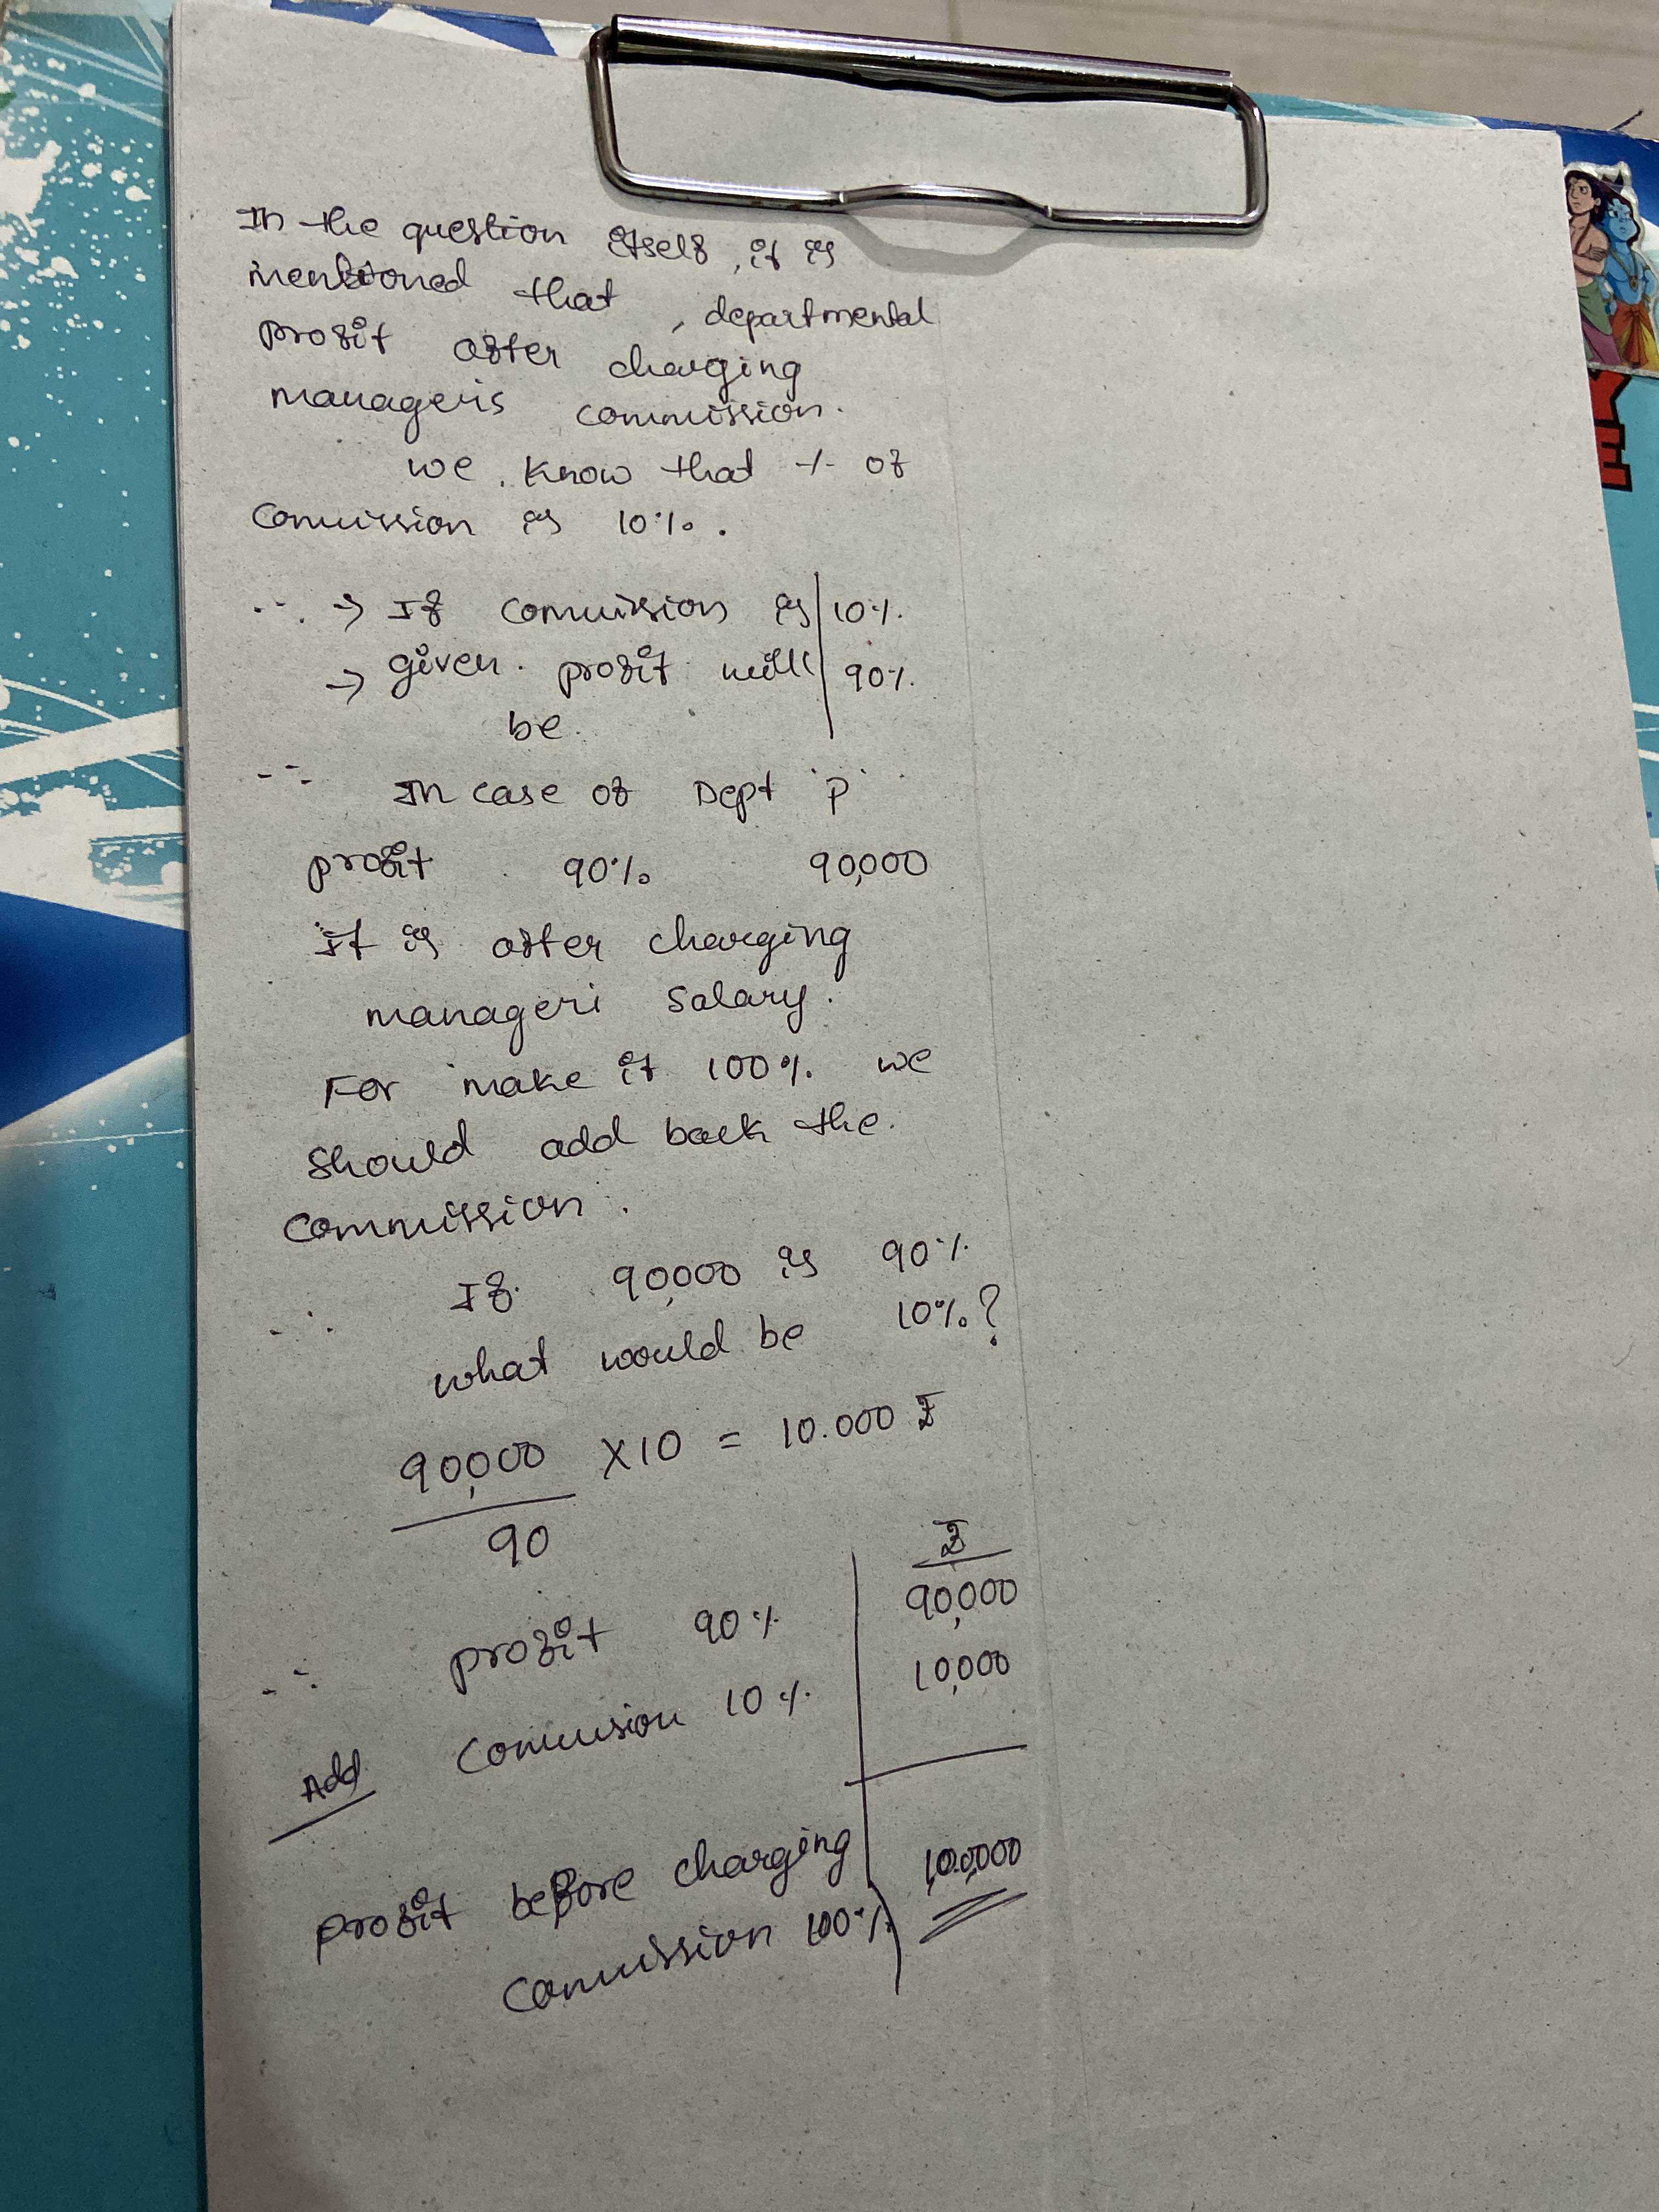 In the question itself, it is
mentioned that, departmental
profit after charging
manager's commission.
we know that % of
Commission is 10%.
∴ → If commission is | 10%.
→ given. profit will | 90%.
be.
∴ In case of Dept 'P'
profit 90% 90,000
it is after charging
manager's salary.
For make it 100% we
should add back the.
commission.
∴ If 90,000 is 90%
what would be 10%?
90,000 X10 = 10.000 ₹
90
₹
∴ profit 90% 90,000
Add Commision 10% 10,000
profit before charging
commission 100% 1,00,000